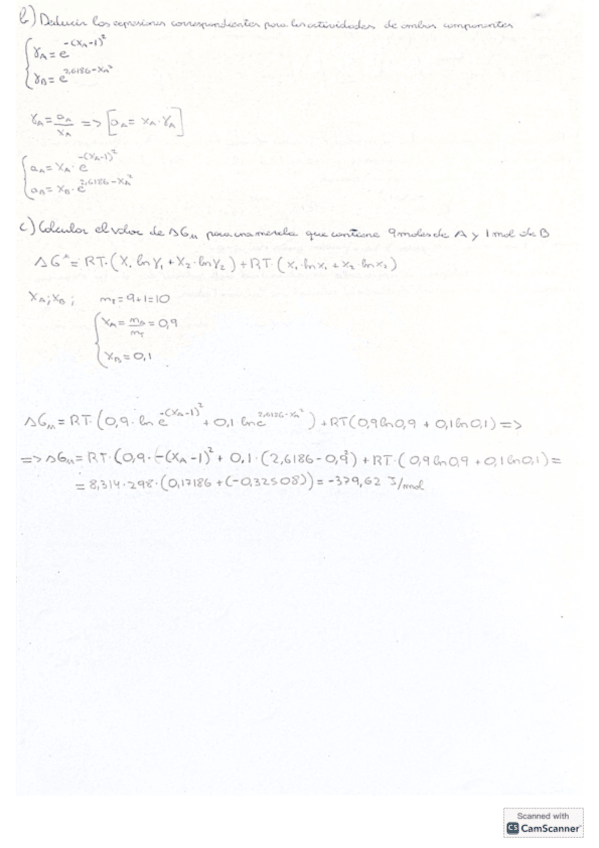 b) Deducir las expresiones correspondientes para las actividades de ambos componentes
γA = e^-(XA-1)²
γB = e^2,6186-XA²
γA = aA/XA => [aA = XA·γA]
aA = XA·e^-(XA-1)²
aB = XB·e^2,6186-XA²
c) Calcular el valor de ΔGM para una mezcla que contiene 9 moles de A y 1 mol de B
ΔG^M = RT·(X1 lnγ1 + X2·lnγ2) + RT(X1·lnx1 + X2·lnx2)
XA; XB; mT = 9+1 = 10
XA = mA/mT = 0,9
XB = 0,1
ΔGM = RT·(0,9·ln e^-(XA-1)² + 0,1 ln e^2,6186-XA²) + RT(0,9 ln 0,9 + 0,1 ln 0,1) =>
=> ΔGM = RT·(0,9·-(XA-1)² + 0,1·(2,6186-0,9²) + RT·(0,9 ln 0,9 + 0,1 ln 0,1) =
= 8,314·298·(0,17186 + (-0,32508)) = -379,62 J/mol
Scanned with
CS CamScanner